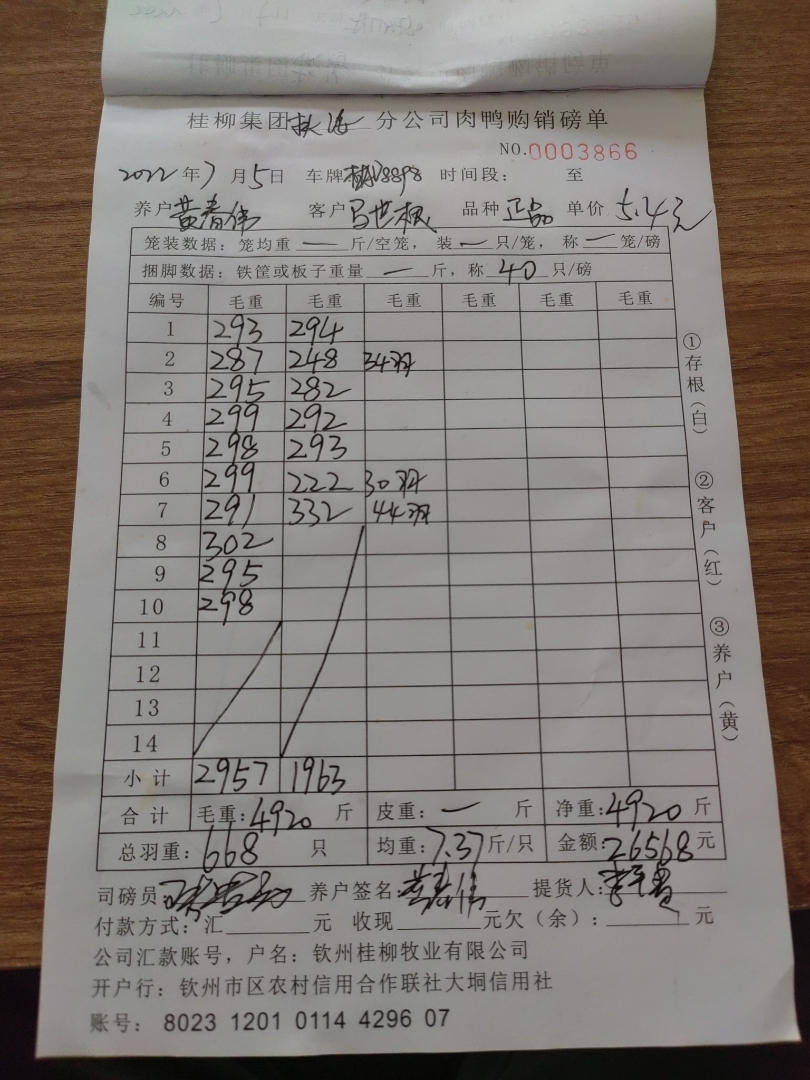 桂柳集团 分公司肉鸭购销磅单
NO.0003866
2022年7月5日 车牌 时间段: 至
养户黄春伟 客户马世枫 品种正品 单价5.4元
笼装数据:笼均重 一 斤/空笼,装 一 只/笼,称 一 笼/磅
捆脚数据:铁筐或板子重量 一 斤,称 40 只/磅
编号 毛重 毛重 毛重 毛重 毛重 毛重
1 293 294
2 287 248 34羽
3 295 282
4 299 292
5 298 293
6 299 222 30羽
7 291 332 44羽
8 302
9 295
10 298
11
12
13
14
小计 2957 1963
合计 毛重:4920 斤 皮重:一 斤 净重:4920 斤
总羽重:668 只 均重:7.37斤/只 金额:26568元
司磅员 养户签名:黄春伟 提货人:
付款方式:汇 元 收现 元欠(余): 元
公司汇款账号,户名:钦州桂柳牧业有限公司
开户行:钦州市区农村信用合作联社大垌信用社
账号: 8023 1201 0114 4296 07
①存根(白)
②客户(红)
③养户(黄)